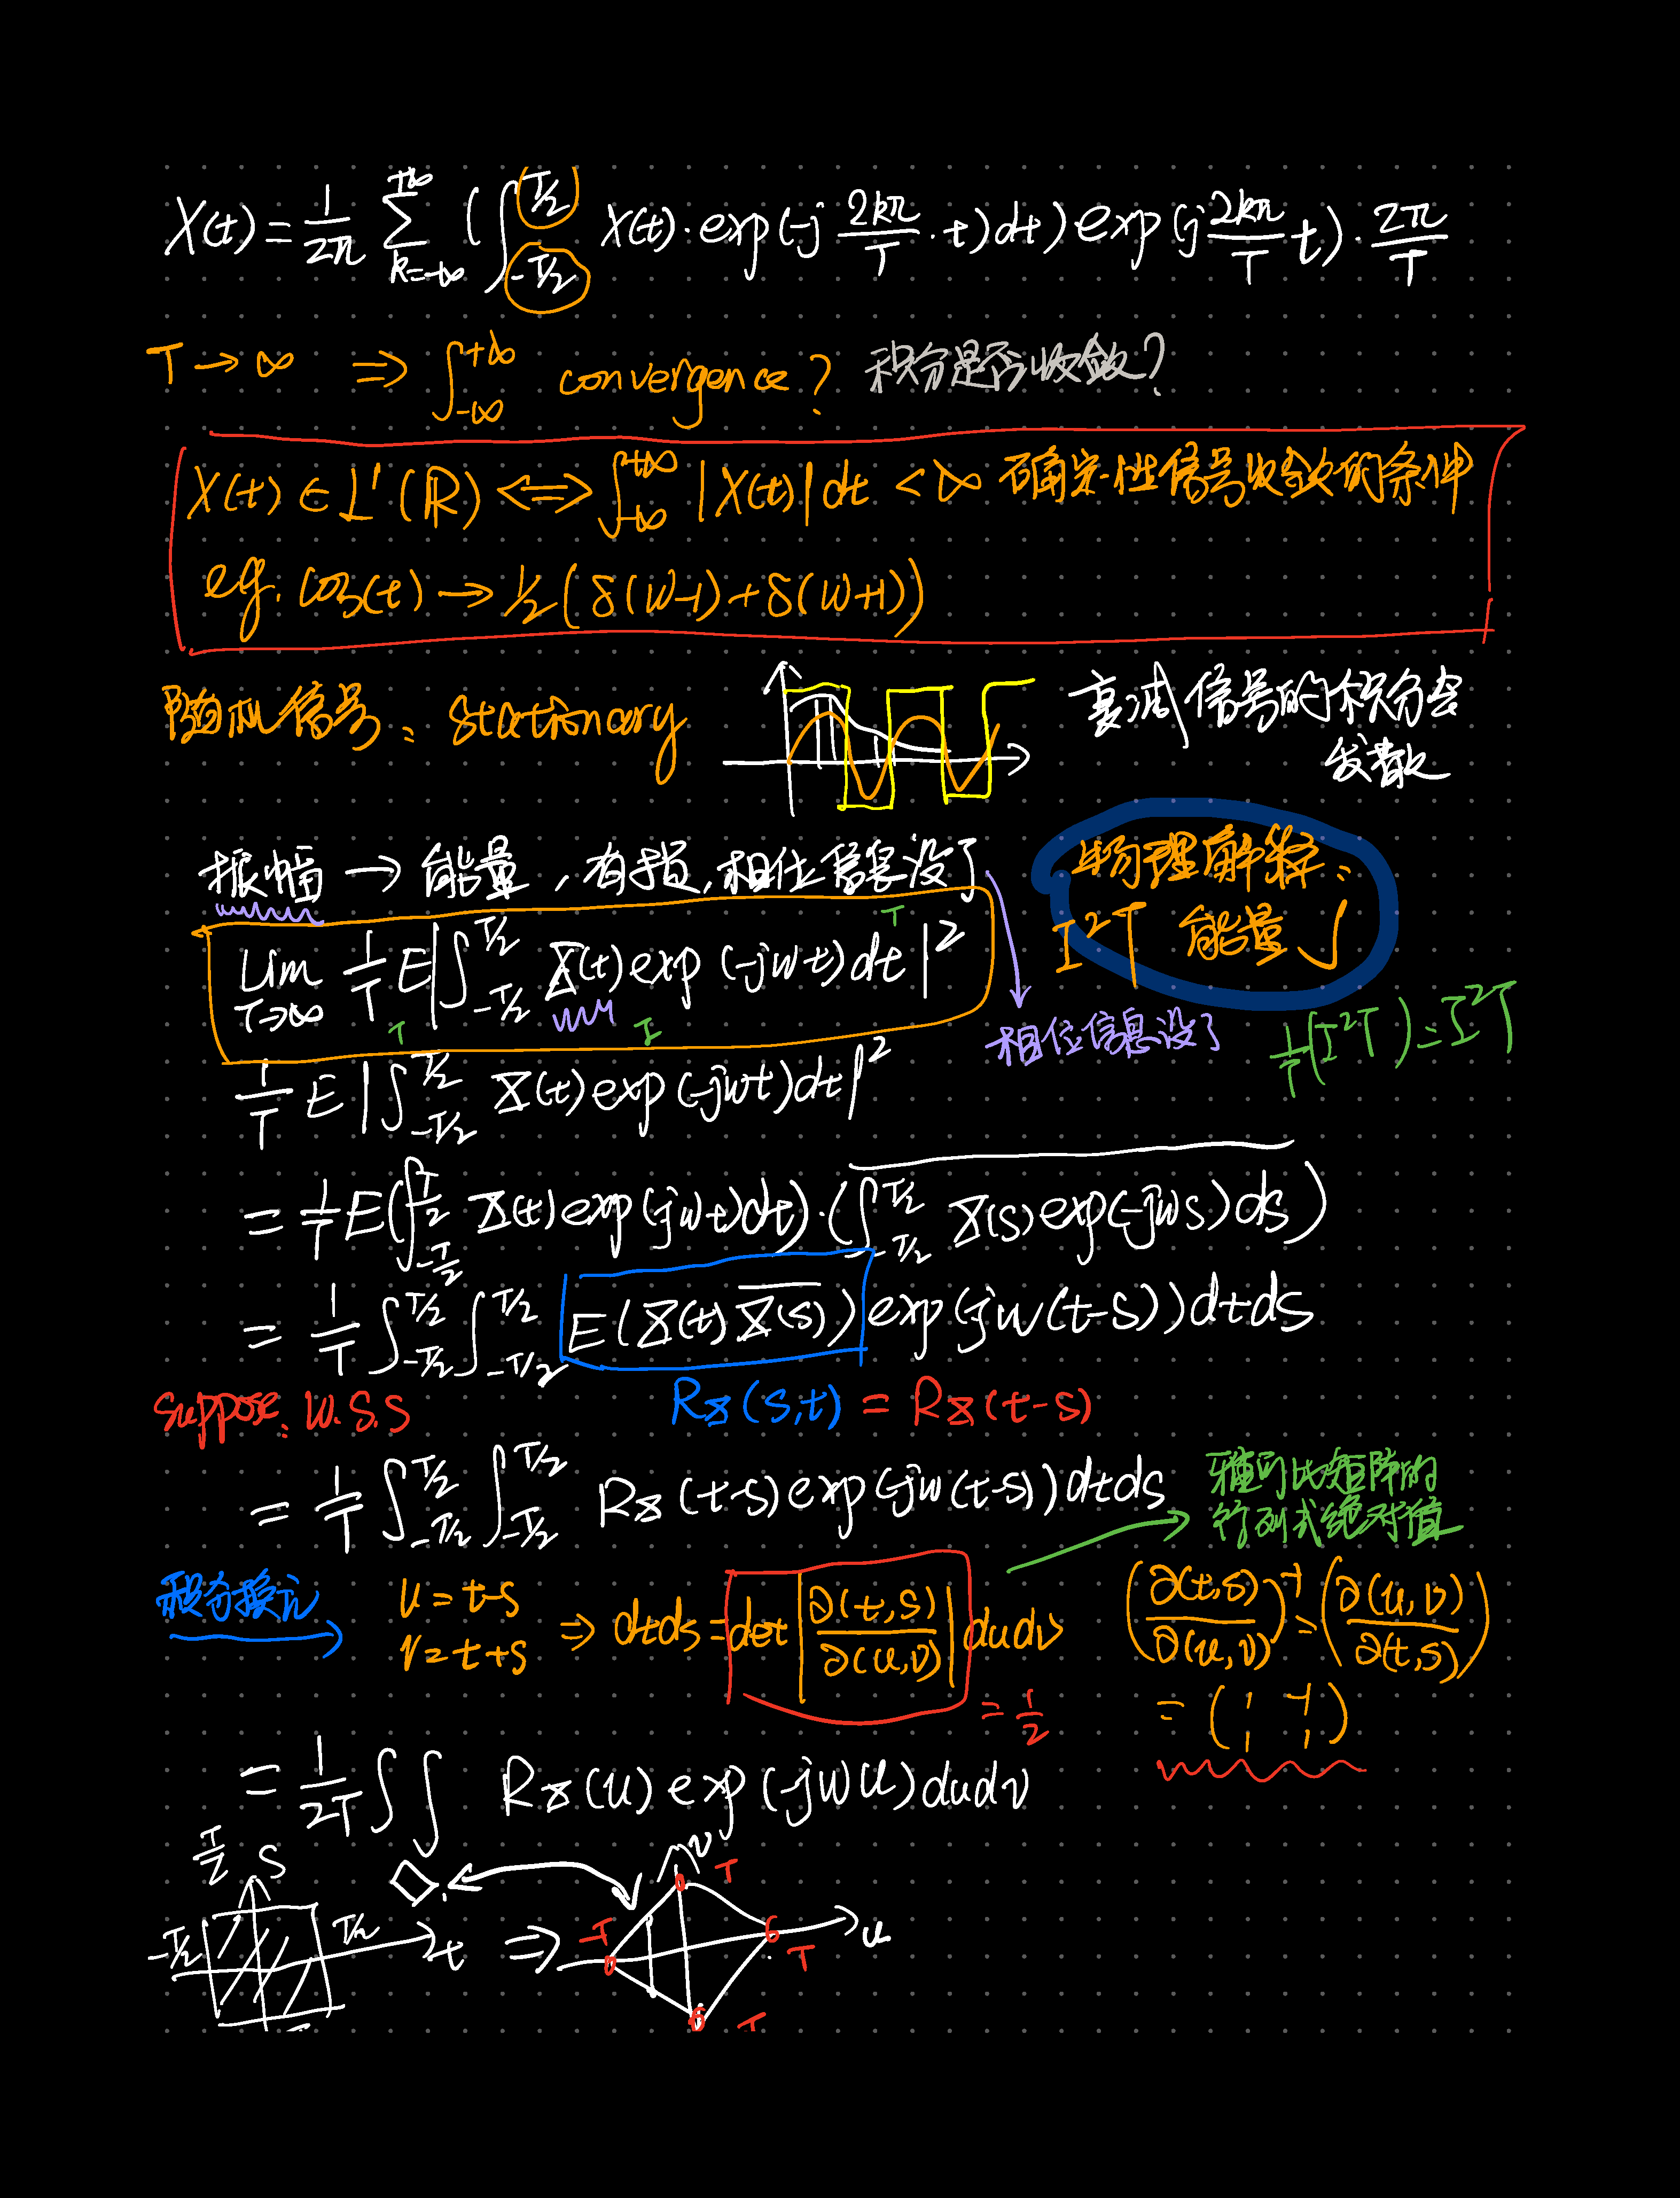 X(t) = 1/2π ∑_{k=-∞}^{+∞} (∫_{-T/2}^{T/2} X(t)·exp(-j 2kπ/T ·t)dt) exp(j 2kπ/T t)· 2π/T
T→∞ ⇒ ∫_{-∞}^{+∞} convergence? 积分是否收敛?
X(t)∈L¹(ℝ) <=> ∫_{-∞}^{+∞} |X(t)|dt < ∞ 确定性信号收敛的条件
eg. Cos(t) → 1/2(δ(w-1)+δ(w+1))
随机信号: Stationary
衰减信号的积分会
发散
振幅 → 能量, 有损, 相位信息没了
物理解释:
I²T 能量 J
Lim_{T→∞} 1/T E|∫_{-T/2}^{T/2} X(t)exp(-jwt)dt|²
T
T
I
相位信息没了
1/T(I²T)=I²T
1/T E|∫_{-T/2}^{T/2} X(t)exp(-jwt)dt|²
= 1/T E(∫_{-T/2}^{T/2} X(t)exp(-jwt)dt)·(∫_{-T/2}^{T/2} X(s)exp(-jws)ds)
= 1/T ∫_{-T/2}^{T/2} ∫_{-T/2}^{T/2} E(X(t)X̅(s̅)) exp(-jw(t-s))dtds
Suppose: W.S.S
R_X(s,t) = R_X(t-s)
= 1/T ∫_{-T/2}^{T/2} ∫_{-T/2}^{T/2} R_X(t-s)exp(-jw(t-s))dtds
雅可比矩阵的
行列式绝对值
积分换元
u=t-s
v=t+s
⇒ dtds = det|∂(t,s)/∂(u,v)| dudv
= 1/2
(∂(t,s)/∂(u,v))⁻¹ = (∂(u,v)/∂(t,s))
= (1 -1
1 1)
= 1/2T ∫∫ R_X(u)exp(-jwu)dudv
T/2 S
-T/2
T/2
t
⇒
v
T
-T
T
u
-T